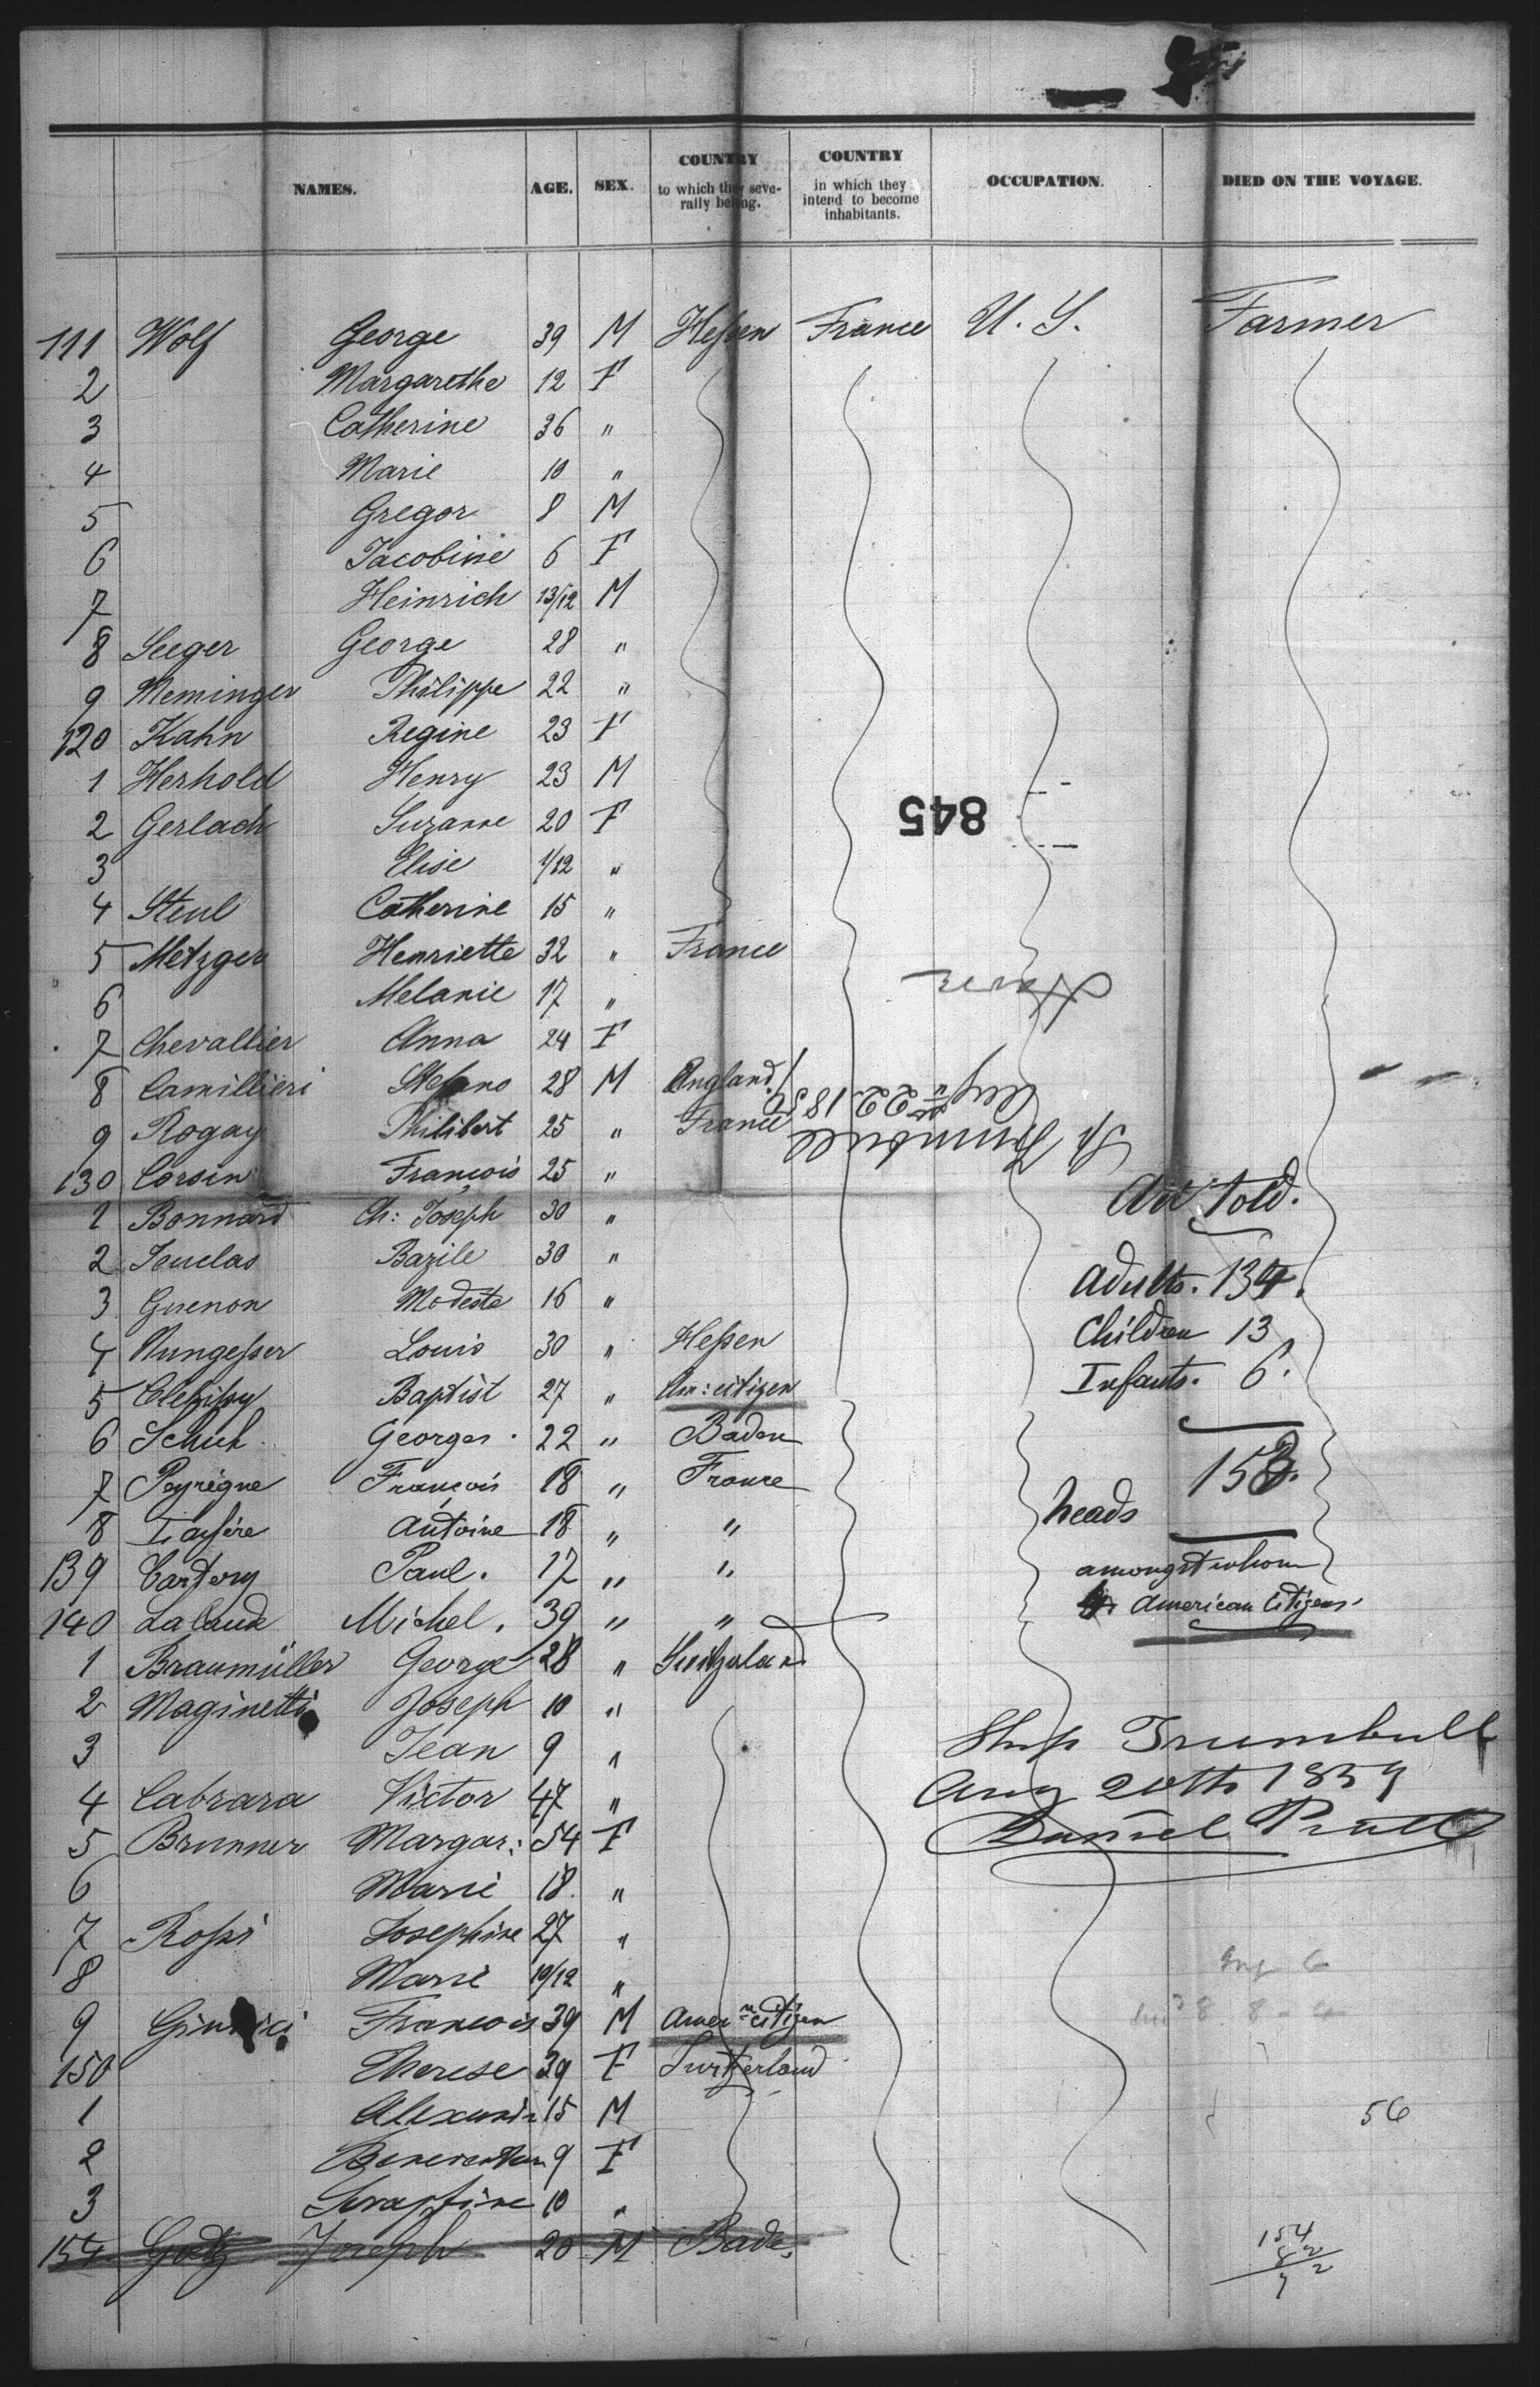 NAMES. AGE. SEX. COUNTRY to which they severally belong. COUNTRY in which they intend to become inhabitants. OCCUPATION. DIED ON THE VOYAGE.
111 Wolf George 39 M Heßen France U. S. Farmer
2 Margarethe 12 F
3 Catherine 36 "
4 Marie 10 "
5 Gregor 8 M
6 Jacobine 6 F
7 Heinrich 13/12 M
8 Seeger George 28 "
9 Meminger Philippe 22 "
120 Kahn Regine 23 F
1 Herhold Henry 23 M
2 Gerlach Suzanne 20 F
845
3 Elise 1/12 "
4 Steul Catherine 15 "
5 Metzger Henriette 32 " France
6 Melanie 17 "
Havre
7 Chevallier Anna 24 F
8 Camillieri Stefano 28 M England
Aug 22 185
9 Rogay Philibert 25 " France
Sh Trumbull
130 Corsin François 25 "
All told.
1 Bonnard Ch: Joseph 30 "
2 Teuclas Bazile 30 "
Adults. 134.
3 Guenon Modeste 16 "
Children 13
4 Nungeßer Louis 30 " Heßen
Infants. 6.
5 Baptist 27 " Am: citizen
6 Schuh Georges 22 " Baden
153.
7 Peyrègne François 18 " France
heads
8 Antoine 18 " "
139 Paul. 17 " "
amongst whom
140 Michel. 39 " "
American Citizens.
1 Braumüller George 28 "
2 Maginetti Joseph 10 "
Ship Trumbull
3 Jean 9 "
4 Cabrara Victor 47 "
Aug 20th 1859
5 Brunner Margar: 54 F
Daniel Pratt
6 Marie 18. "
7 Roßi Josephine 27 "
8 Marie 10/12 "
9 François 39 M Amern citizen
150 Therese 39 F Switzerland
1 15 M
56
2 9 F
3 10 "
154 Goetz Joseph 20 M Bade.
154